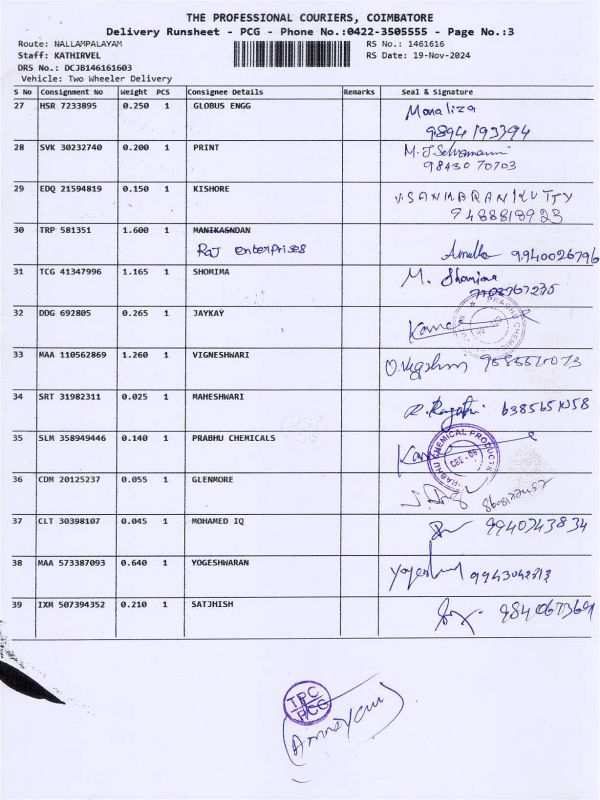 THE PROFESSIONAL COURIERS, COIMBATORE
Delivery Runsheet - PCG - Phone No.:0422-3505555 - Page No.:3
Route: NALLAMPALAYAM RS No.: 1461616
Staff: KATHIRVEL RS Date: 19-Nov-2024
DRS No.: DCJB146161603
Vehicle: Two Wheeler Delivery
S No Consignment No Weight PCS Consignee Details Remarks Seal & Signature
27 HSR 7233895 0.250 1 GLOBUS ENGG Monaliza
9894193394
28 SVK 30232740 0.200 1 PRINT M.J.Selvamani
98430 70703
29 EDQ 21594819 0.150 1 KISHORE
9488818923
30 TRP 581351 1.600 1 MANIKASNDAN
Raj enterprises 9940026796
31 TCG 41347996 1.165 1 SHOMIMA M.
32 DDG 692805 0.265 1 JAYKAY
33 MAA 110562869 1.260 1 VIGNESHWARI
34 SRT 31982311 0.025 1 MAHESHWARI
35 SLM 358949446 0.140 1 PRABHU CHEMICALS
PRABHU CHEMICAL PRODUCTS
36 CDM 20125237 0.055 1 GLENMORE
37 CLT 30398107 0.045 1 MOHAMED IQ 9940743834
38 MAA 573387093 0.640 1 YOGESHWARAN
39 IXM 507394352 0.210 1 SATJHISH
TPC
PCG